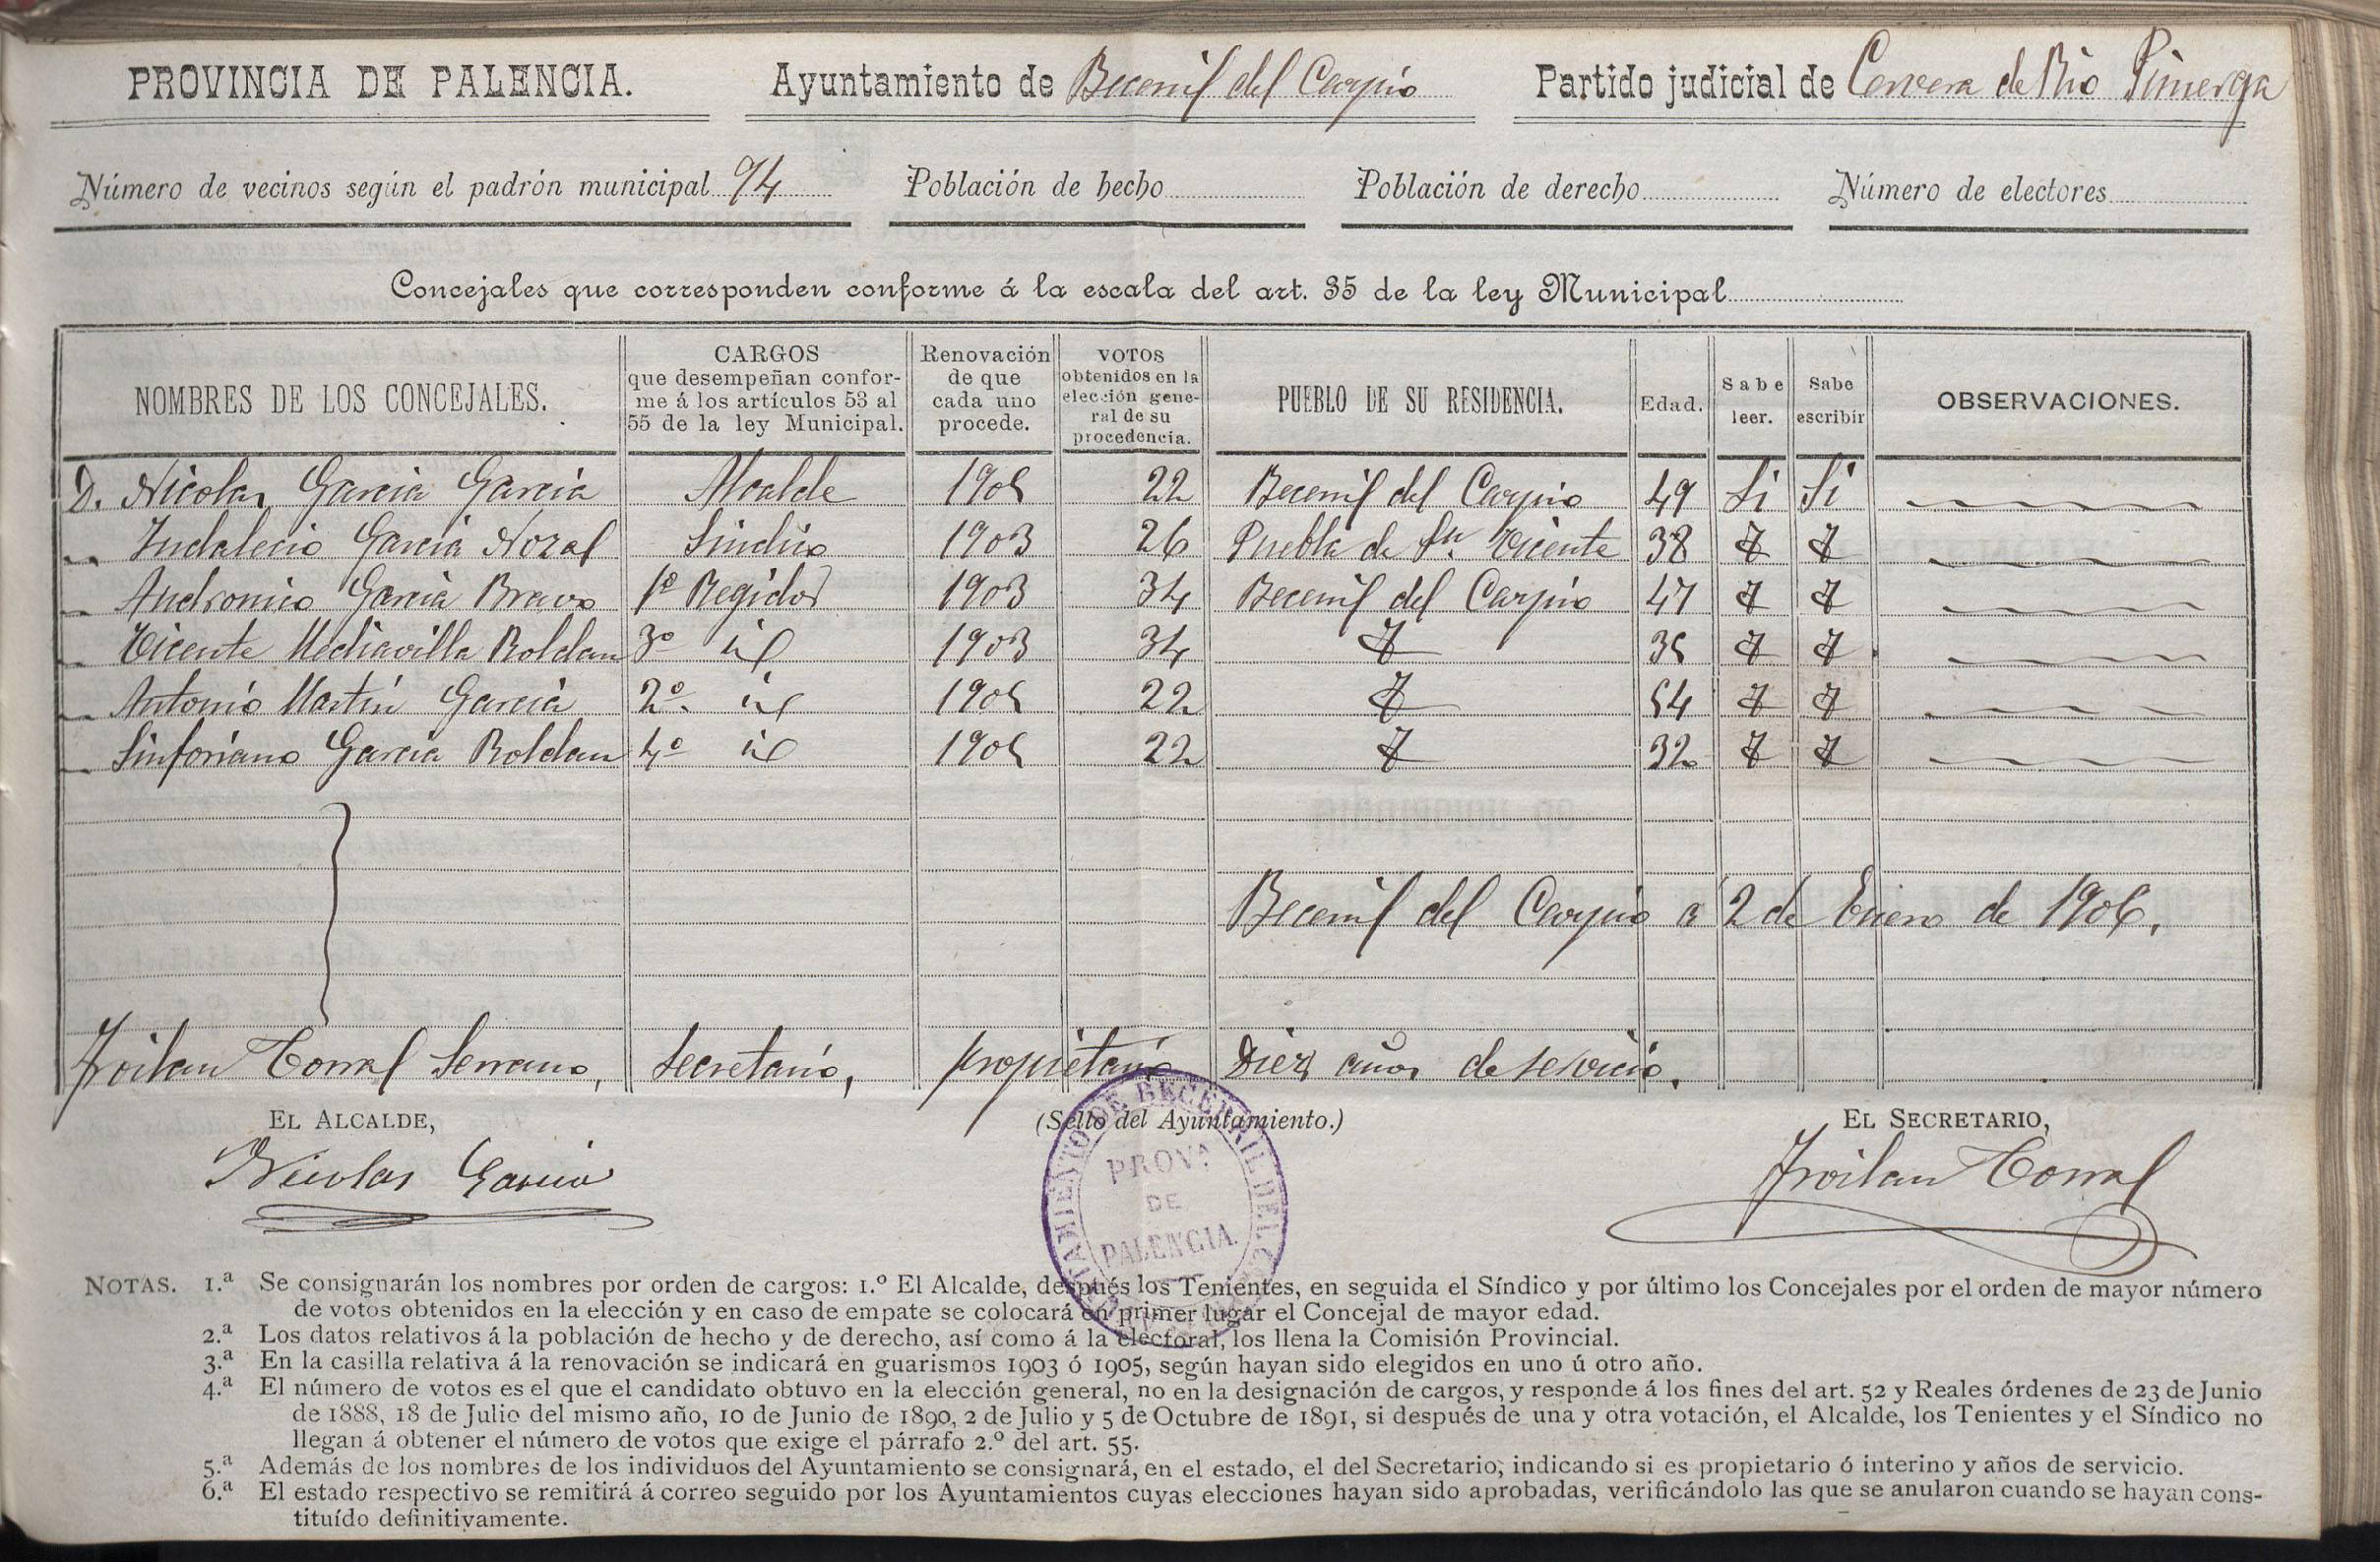 PROVINCIA DE PALENCIA. Ayuntamiento de Becerril del Carpio Partido judicial de Cervera de Rio Pisuerga
Número de vecinos según el padrón municipal 94 Población de hecho Población de derecho Número de electores
Concejales que corresponden conforme á la escala del art. 35 de la ley Municipal
NOMBRES DE LOS CONCEJALES. CARGOS que desempeñan confor- me á los artículos 53 al 55 de la ley Municipal. Renovación de que cada uno procede. VOTOS obtenidos en la elección gene- ral de su procedencia. PUEBLO DE SU RESIDENCIA. Edad. Sabe leer. Sabe escribir OBSERVACIONES.
D. Nicolas Garcia Garcia Alcalde 1905 22 Becerril del Carpio 49 Si Si
Indalecio Garcia Nozal Sindico 1903 26 Puebla de Sn. Vicente 38 Id Id
Andronico Garcia Bravo 1º Regidor 1903 34 Becerril del Carpio 47 Id Id
Vicente Mediavilla Roldan 3º id 1903 34 Id 35 Id Id
Antonio Martin Garcia 2º id 1905 22 Id 54 Id Id
Sinforiano Garcia Roldan 4º id 1905 22 Id 32 Id Id
Becerril del Carpio a 2 de Enero de 1906.
Froilan Corral Serrano, Secretario, propietario Diez años de servicio.
EL ALCALDE, (Sello del Ayuntamiento.) EL SECRETARIO,
Nicolas Garcia Froilan Corral
AYUNTAMIENTO DE BECERRIL DEL
PROVA
DE
PALENCIA.
NOTAS. 1.ª Se consignarán los nombres por orden de cargos: 1.º El Alcalde, después los Tenientes, en seguida el Síndico y por último los Concejales por el orden de mayor número
de votos obtenidos en la elección y en caso de empate se colocará en primer lugar el Concejal de mayor edad.
2.ª Los datos relativos á la población de hecho y de derecho, así como á la electoral, los llena la Comisión Provincial.
3.ª En la casilla relativa á la renovación se indicará en guarismos 1903 ó 1905, según hayan sido elegidos en uno ú otro año.
4.ª El número de votos es el que el candidato obtuvo en la elección general, no en la designación de cargos, y responde á los fines del art. 52 y Reales órdenes de 23 de Junio
de 1888, 18 de Julio del mismo año, 10 de Junio de 1890, 2 de Julio y 5 de Octubre de 1891, si después de una y otra votación, el Alcalde, los Tenientes y el Síndico no
llegan á obtener el número de votos que exige el párrafo 2.º del art. 55.
5.ª Además de los nombres de los individuos del Ayuntamiento se consignará, en el estado, el del Secretario, indicando si es propietario ó interino y años de servicio.
6.ª El estado respectivo se remitirá á correo seguido por los Ayuntamientos cuyas elecciones hayan sido aprobadas, verificándolo las que se anularon cuando se hayan cons-
tituído definitivamente.